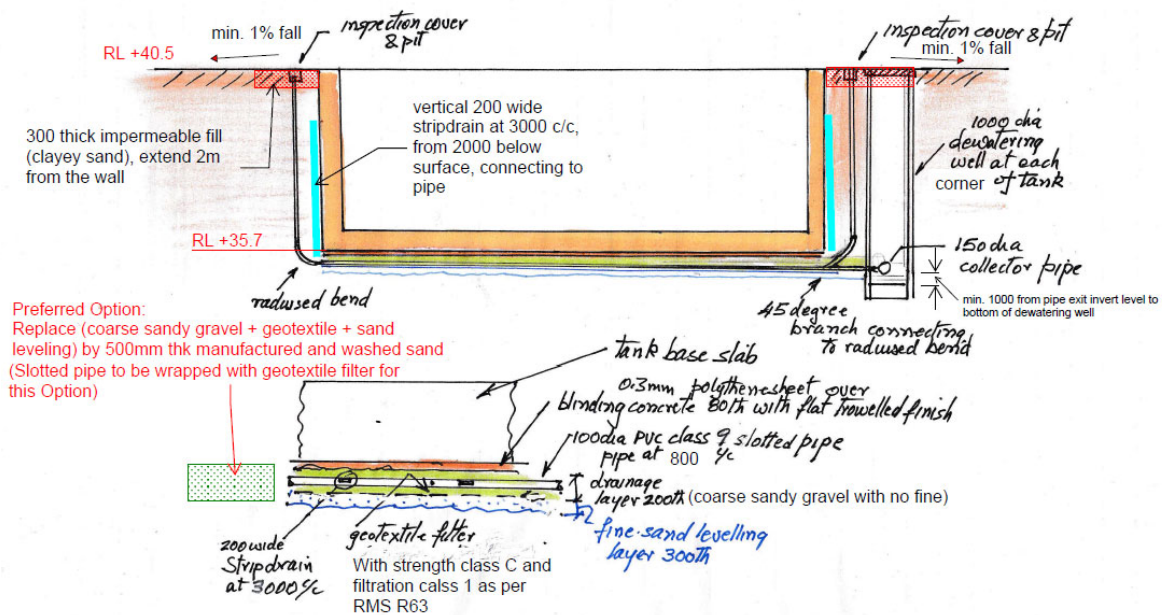 inspection cover
& pit
min. 1% fall
RL +40.5
inspection cover & pit
min. 1% fall
300 thick impermeable fill
(clayey sand), extend 2m
from the wall
vertical 200 wide
stripdrain at 3000 c/c,
from 2000 below
surface, connecting to
pipe
1000 dia
dewatering
well at each
corner of tank
RL +35.7
150 dia
collector pipe
min. 1000 from pipe exit invert level to
bottom of dewatering well
radiused bend
45 degree
branch connecting
to radiused bend
Preferred Option:
Replace (coarse sandy gravel + geotextile + sand
leveling) by 500mm thk manufactured and washed sand
(Slotted pipe to be wrapped with geotextile filter for
this Option)
tank base slab
0.3mm polythene sheet over
blinding concrete 80th with flat trowelled finish
100dia PVC class 9 slotted pipe
pipe at 800 c/c
drainage
layer 200th (coarse sandy gravel with no fine)
fine sand levelling
layer 300th
200 wide
Stripdrain
at 3000 c/c
geotextile filter
With strength class C and
filtration calss 1 as per
RMS R63